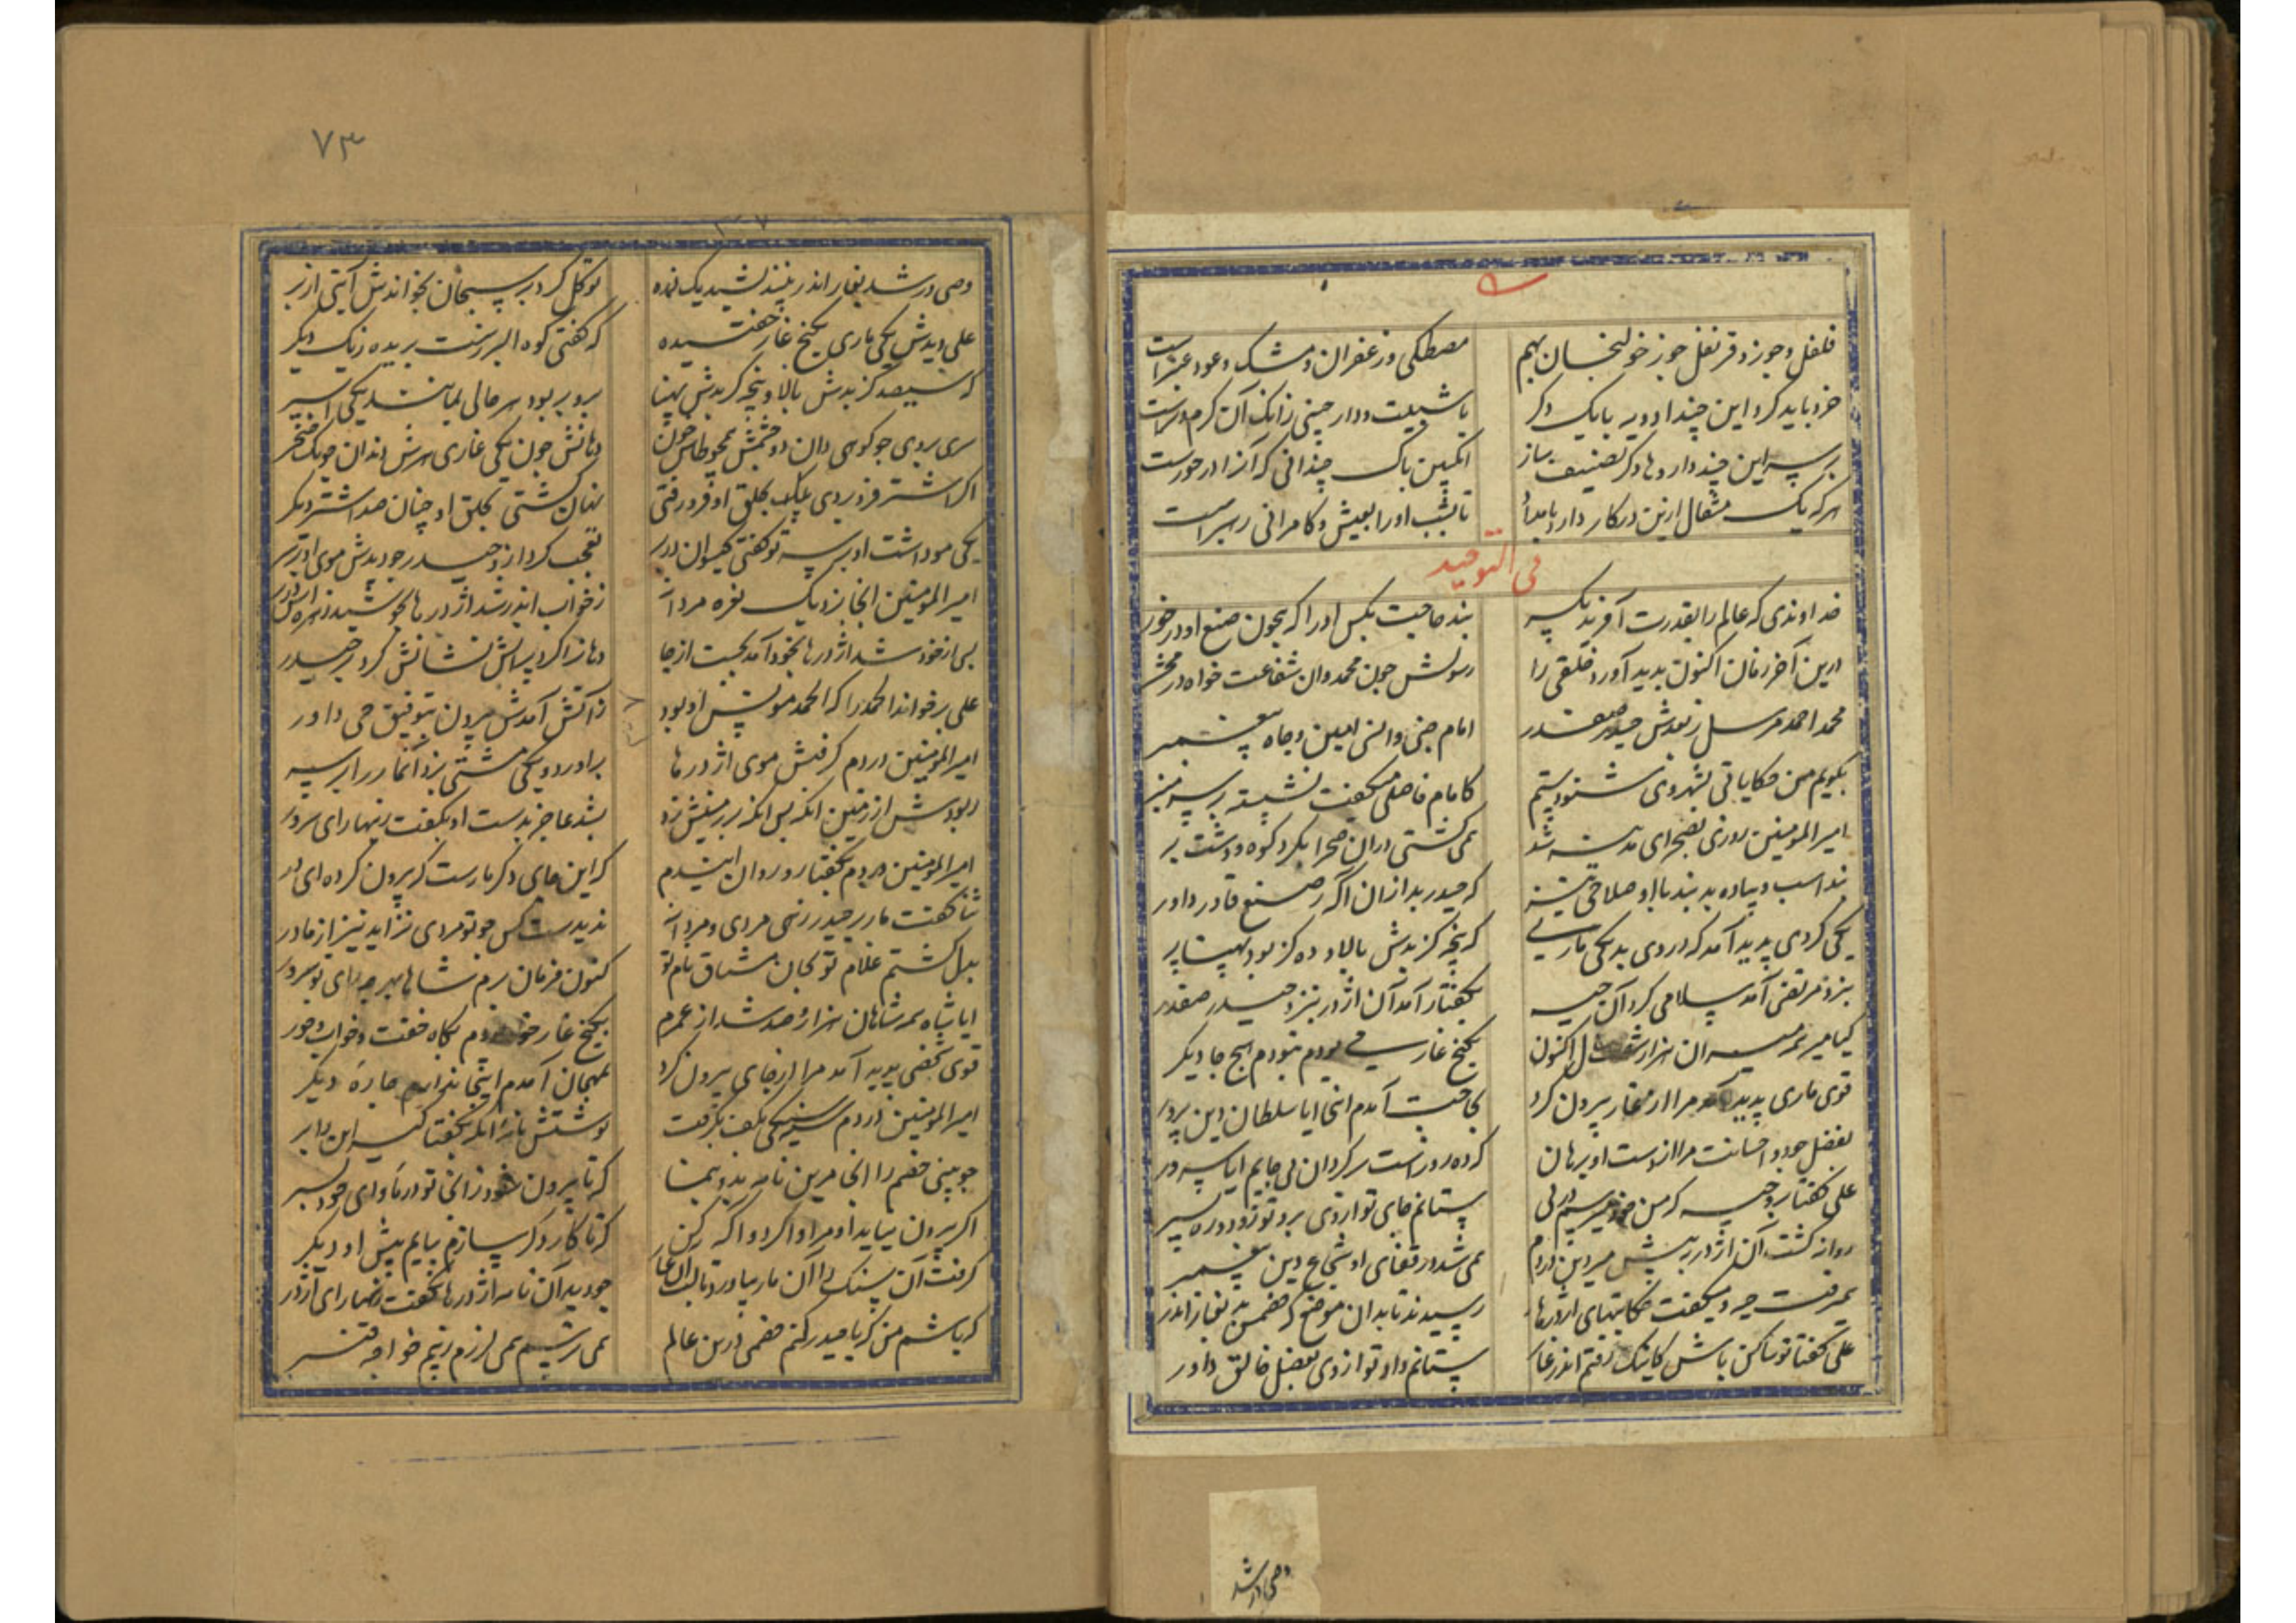 فلفل و جوز و قرنفل جوز خولنجان بهم    مصطکی و زعفران و مشک و عود عنبر است
خرد باید کرد این چند ادویه با یک دگر    با شیلیت و دار چینی زانک آن کرم و تر است
بر سر این چند داروها دگر تصنیف ساز    انکبین پاک چندانی که آنرا در خورست
هر که یک مثقال ازین در کار دارد بامداد    تا بشب او را بعیش و کامرانی رهبر است
فی التوحید
خداوندی که عالم را بقدرت آفرید یکسر    بند حاجت بکس او را که بیچون صنع او در خور
درین آخر زمان اکنون پدید آورد خلقی را    رسولش چون محمد دان شفاعت خواه در محشر
محمد احمد مرسل ز بعدش حیدر صفدر    امام جنی و انسی امین و جاه پیغمبر
بگویم من حکایاتی بشهر وی شنودستم    کامام فاضلی میگفت نشسته بر سر منبر
امیر المومنین روزی بصحرای مدینه شد    همی گشتی در آن صحرا بگرد کوه و دشت بر
نداسب و پیاده بد بند با او صلاحی نیز    که حیدر بد از آن آگه ز صنع قادر داور
یکی گردی پدید آمد که در وی بد یکی ماری    که پنجه گز بدش بالا و ده گز بود پهنا بر
بنزد مرتضی آمد سلامی کرد آن حیه    بگفتار آمد آن اژدر بنزد حیدر صفدر
کیا میر همه میران هزار شصت سال اکنون    بکنج غار بودم نبودم هیچ جا دیگر
قوی ماری پدید آمد مرا از غار بیرون کرد    بحاجت آمدم اینجا ایا سلطان دین پرور
بفضل جود و احسانت مرا از دست او برهان    که ده روزست سرگردان بی جایم ایا سرور
علی گفتا برو حیه که من در پی    ستانم جای تو از وی برو تو زود و ره بسپر
روانه گشت آن اژدر به پیش میر دین دردم    همی شد در قفای او شجاع دین پیغمبر
همی رفت حیه و میگفت حکایتهای اژدرها    رسیدند تا بدان موضع که خصمش بد بغار اندر
علی گفتا تو ساکن باش کاینک رفتم اندر غار    ستانم داد تو از وی بفضل خالق داور
وصی در شد
۷۳
وصی در شد بغار اندر    توکل کرد بر سبحان بخواندش آیتی از بر
علی دیدش یکی ماری بکنج غار خفتیده    که گفتی کوه البرزست بریده ز یک دیگر
که سیصد گز بدش بالا و پنجه گز بدش پهنا    برو بر بود هر خالی بمانند یکی اسپر
سری بر وی چو کوهی دان دو چشمش همچو طاس خون    دهانش چون یکی غاری سرش دندان چو یک خنجر
اگر اشتر فرو بردی یکایک بحلق او فرو رفتی    نهان گشتی بحلق او چنان صد اشتر دیگر
یکی مو داشت او بر سر تو گفتی گیسوان دربر    تعجب کرد ازو حیدر چو دیدش موی او بر سر
امیر المومنین آنجا بزد یک نعره مردانه    ز خواب اندر شد اژدرها بجوشید زهره اش در بر
بی از خود شد اژدرها بخود آمد بجست از جا    دهانرا کرد پر آتش نشانش کرد بر حیدر
علی برخواند الحمد را که الحمد مونس او بود    ز آتش آمدش بیرون بتوفیق حی داور
امیر المومنین در دم گرفتش موی اژدرها    برآورد و یکی مشتی بزد آنمار را بر سر
ربودش از زمین آنگه پس آنگه بر زمینش زد    بشد عاجز بدست او بگفت زنهار ای سرور
امیر المومنین در دم بگفتا رو روان ایندم    که این جای دگر مارست که بیرون کرده ای در
ثنا گفت مار بر حیدر زهی مردی و مردانه    ندیدست کس چو تو مردی نزاید نیز از مادر
بدل گشتم غلام تو بجان مشتاق نام تو    کنون فرمان برم شاها بهرچه رای تو سرور
ایا شاه همه شاهان هزار و صد شد از عمرم    بکنج غار بکاه خفت و خواب و خور
قوی خصمی پدید آمد مرا از جای بیرون کرد    بمهمان آمدم اینجا ندارم چاره دیگر
امیر المومنین در دم سنگی بکف بگرفت    نوشتش نامه آنگه بگفتا گیر این را بر
چو بینی خصم را آنجا مر این نامه بدو بنما    که تا بیرون شود زانجا تو در ماوای خود بسر
اگر بیرون نیاید او مرا واگرد و آگه کن    که تا کار دگر سازم بیایم پیش او دیگر
گرفت آن سنگ را آن مار بیاورد تا لب آن غار    چو دید آن نامه اژدرها بگفت زنهار ای اژدر
که باشم من که با حیدر کنم خصمی درین عالم    همی ترسم همی لرزم زبیم خواجه قنبر